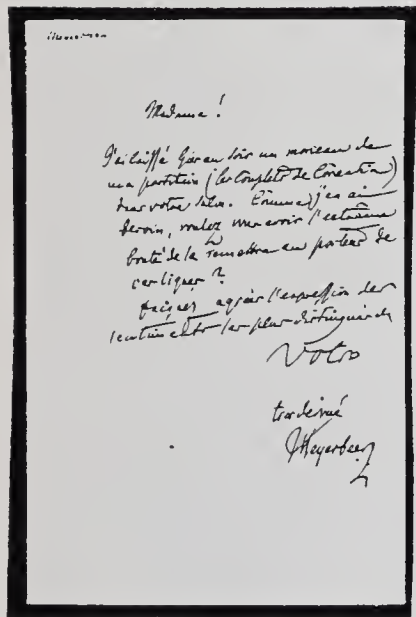 Madame!
J'ai laissé hier au soir un morceau de
ma partition (les Couplets de Corentin)
dans votre salon. Comme j'en ai
besoin, voulez vous avoir l'extrême
bonté de la remettre au porteur de
ces lignes?
agréer l'expression des
sentiments les plus distingués de
Votre
tres devoué
Meyerbeer